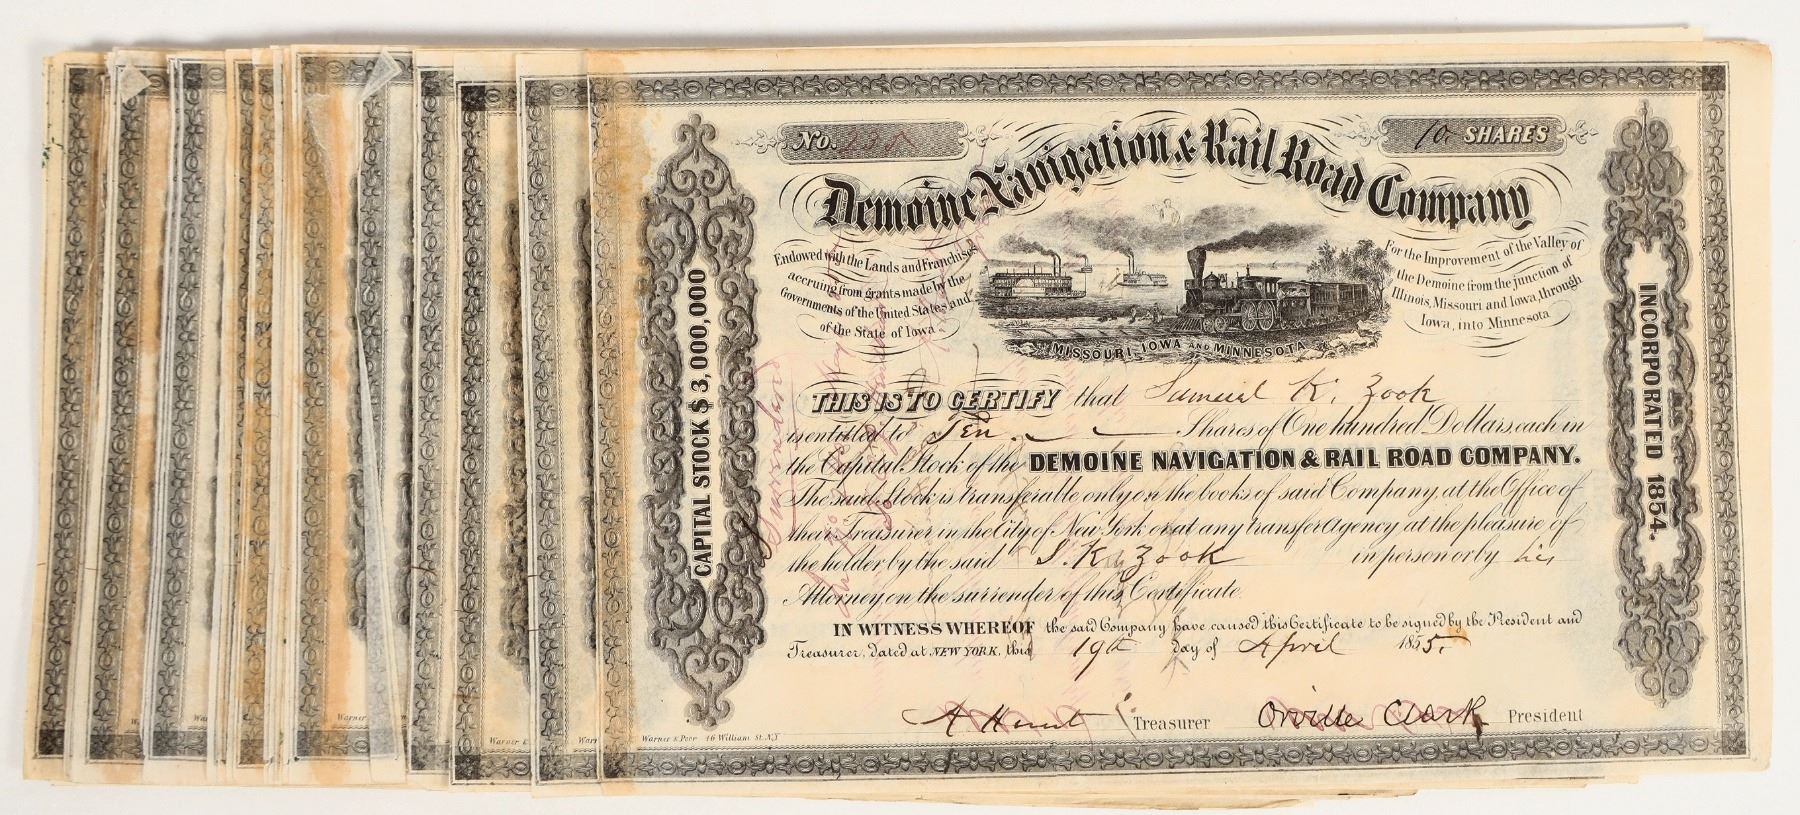 No. 235
10 SHARES
Demoine Navigation & Rail Road Company
Endowed with the Lands and Franchises
accruing from grants made by the
Governments of the United States and
of the State of Iowa
For the Improvement of the Valley of
the Demoine from the junction of
Illinois, Missouri and Iowa, through
Iowa, into Minnesota
MISSOURI, IOWA AND MINNESOTA
CAPITAL STOCK $3,000,000
INCORPORATED 1854.
THIS IS TO CERTIFY that Samuel K. Zook
is entitled to Ten Shares of One Hundred Dollars, each in
the Capital Stock of the DEMOINE NAVIGATION & RAIL ROAD COMPANY.
The said Stock is transferable only on the books of said Company, at the Office of
their Treasurer, in the City of New York or at any transfer agency at the pleasure of
the holder by the said S. K. Zook in person or by his
Attorney, on the surrender of this Certificate.
IN WITNESS WHEREOF the said Company have caused this Certificate to be signed by the President and
Treasurer, dated at NEW YORK, this 19th day of April 1855.
A Hunt Treasurer Orville Clark President
Warner & Peer 46 William St. N.Y
Surrendered
Warner
Warner &